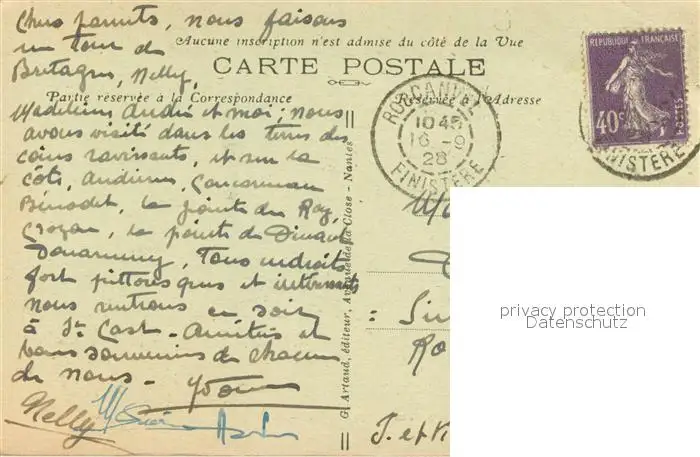 Chers parents, nous faisons
un tour de
Bretagne, Nelly,
Madeleine André et moi, nous
avons visité dans les terres des
coins ravissants, et sur la
côte, Audierne, Concarneau
Bénodet, la pointe du Raz,
Crozon, la pointe de Dinan
Douarnenez, Tous endroits
fort pittoresques et intéressants
nous rentrons ce soir
à St Cast - Amitiés et
bons souvenirs de chacun
de nous - Yvonne
Nelly
Aucune inscription n'est admise du côté de la Vue
CARTE POSTALE
Partie réservée à la Correspondance
Réservée à l'Adresse
G. Artaud, éditeur, Avenue de la Close - Nantes
ROSCANVEL
1045
16 -9
28
FINISTÈRE
REPUBLIQUE FRANÇAISE
40c
POSTES
FINISTÈRE
privacy protection
Datenschutz